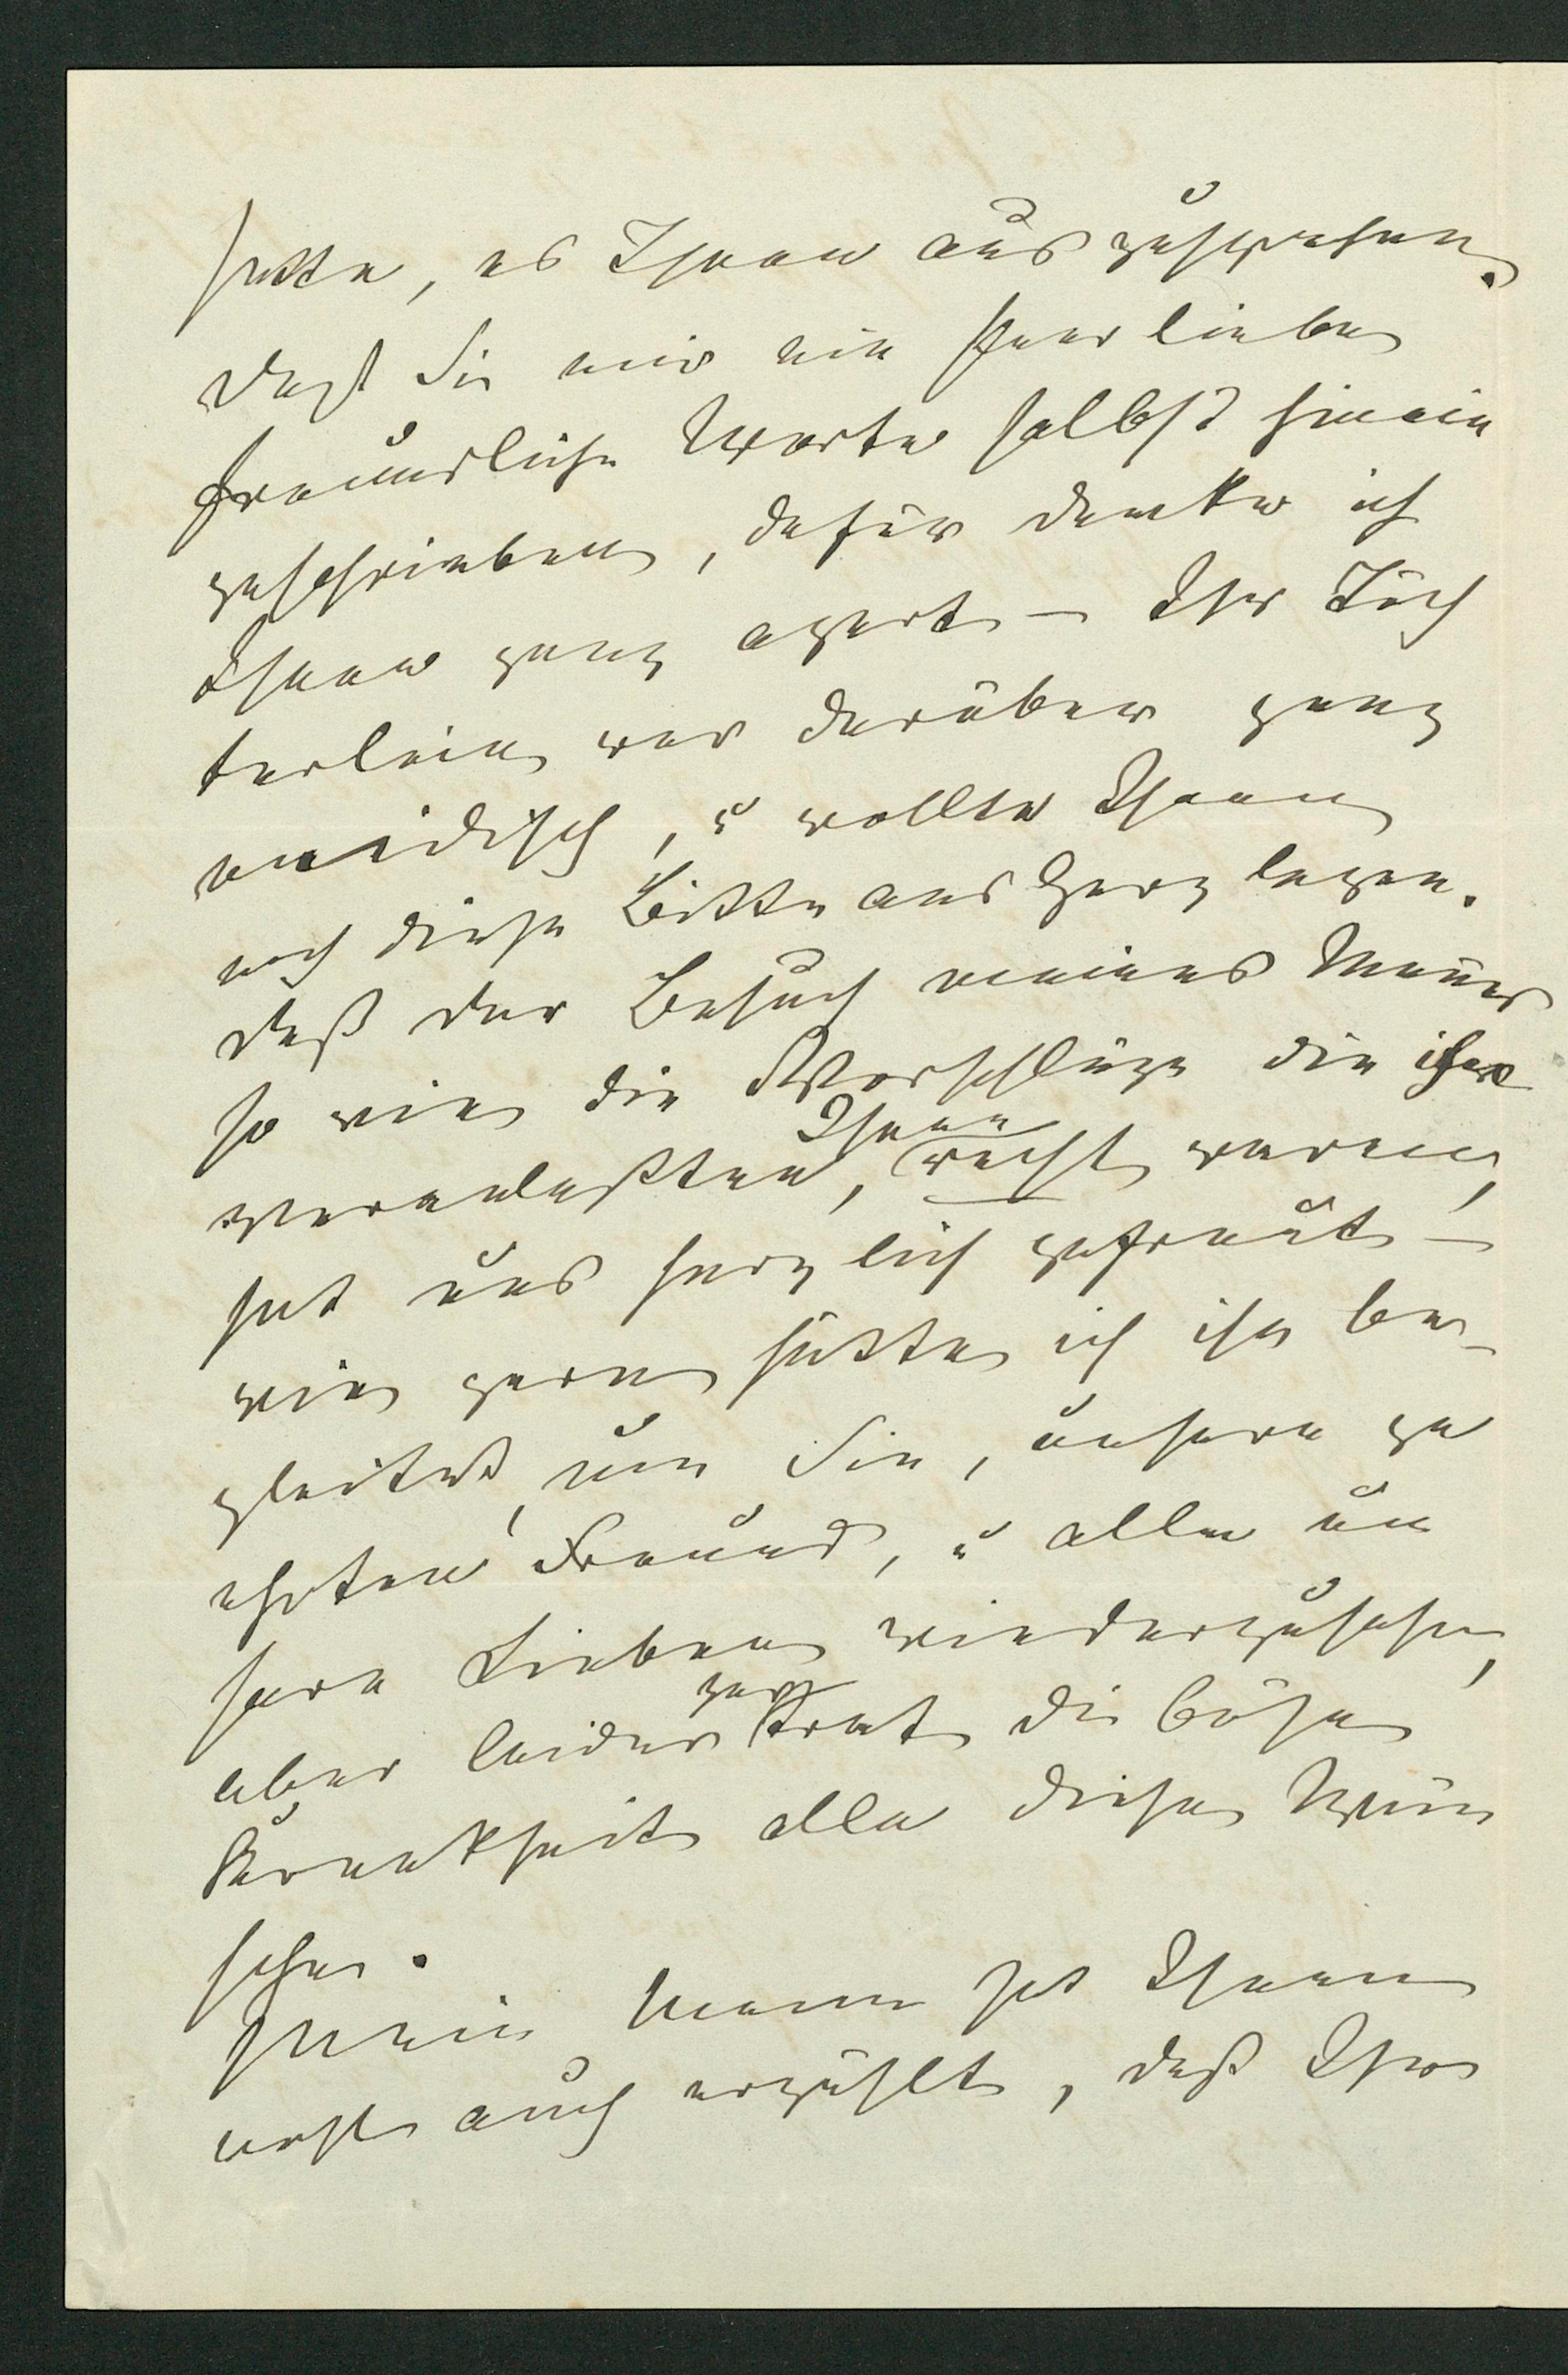 hatte, es Ihnen auszusprechen.
Daß Sie mir ein Paar liebe
freundliche Worte selbst hinein
geschrieben, dafür danke ich
Ihnen ganz apart – Ihr Töch
terlein war darüber ganz
neidisch, u wollte Ihnen
noch diese Bitte ans Herz legen.
Daß der Besuch meines Mannes
so wie die Vorschläge die ihn
veranlaßten, Ihnen recht waren,
hat uns herzlich gefreut –
wie gern hätte ich ihn be-
gleitet, um Sie, unsern ge
ehrten Freund, u alle un
sere Lieben wiederzusehen,
aber leider zertrat die böse
Krankheit alle diese Wün
sche.
Mein Mann hat Ihnen
wohl auch erzählt, daß Ihre